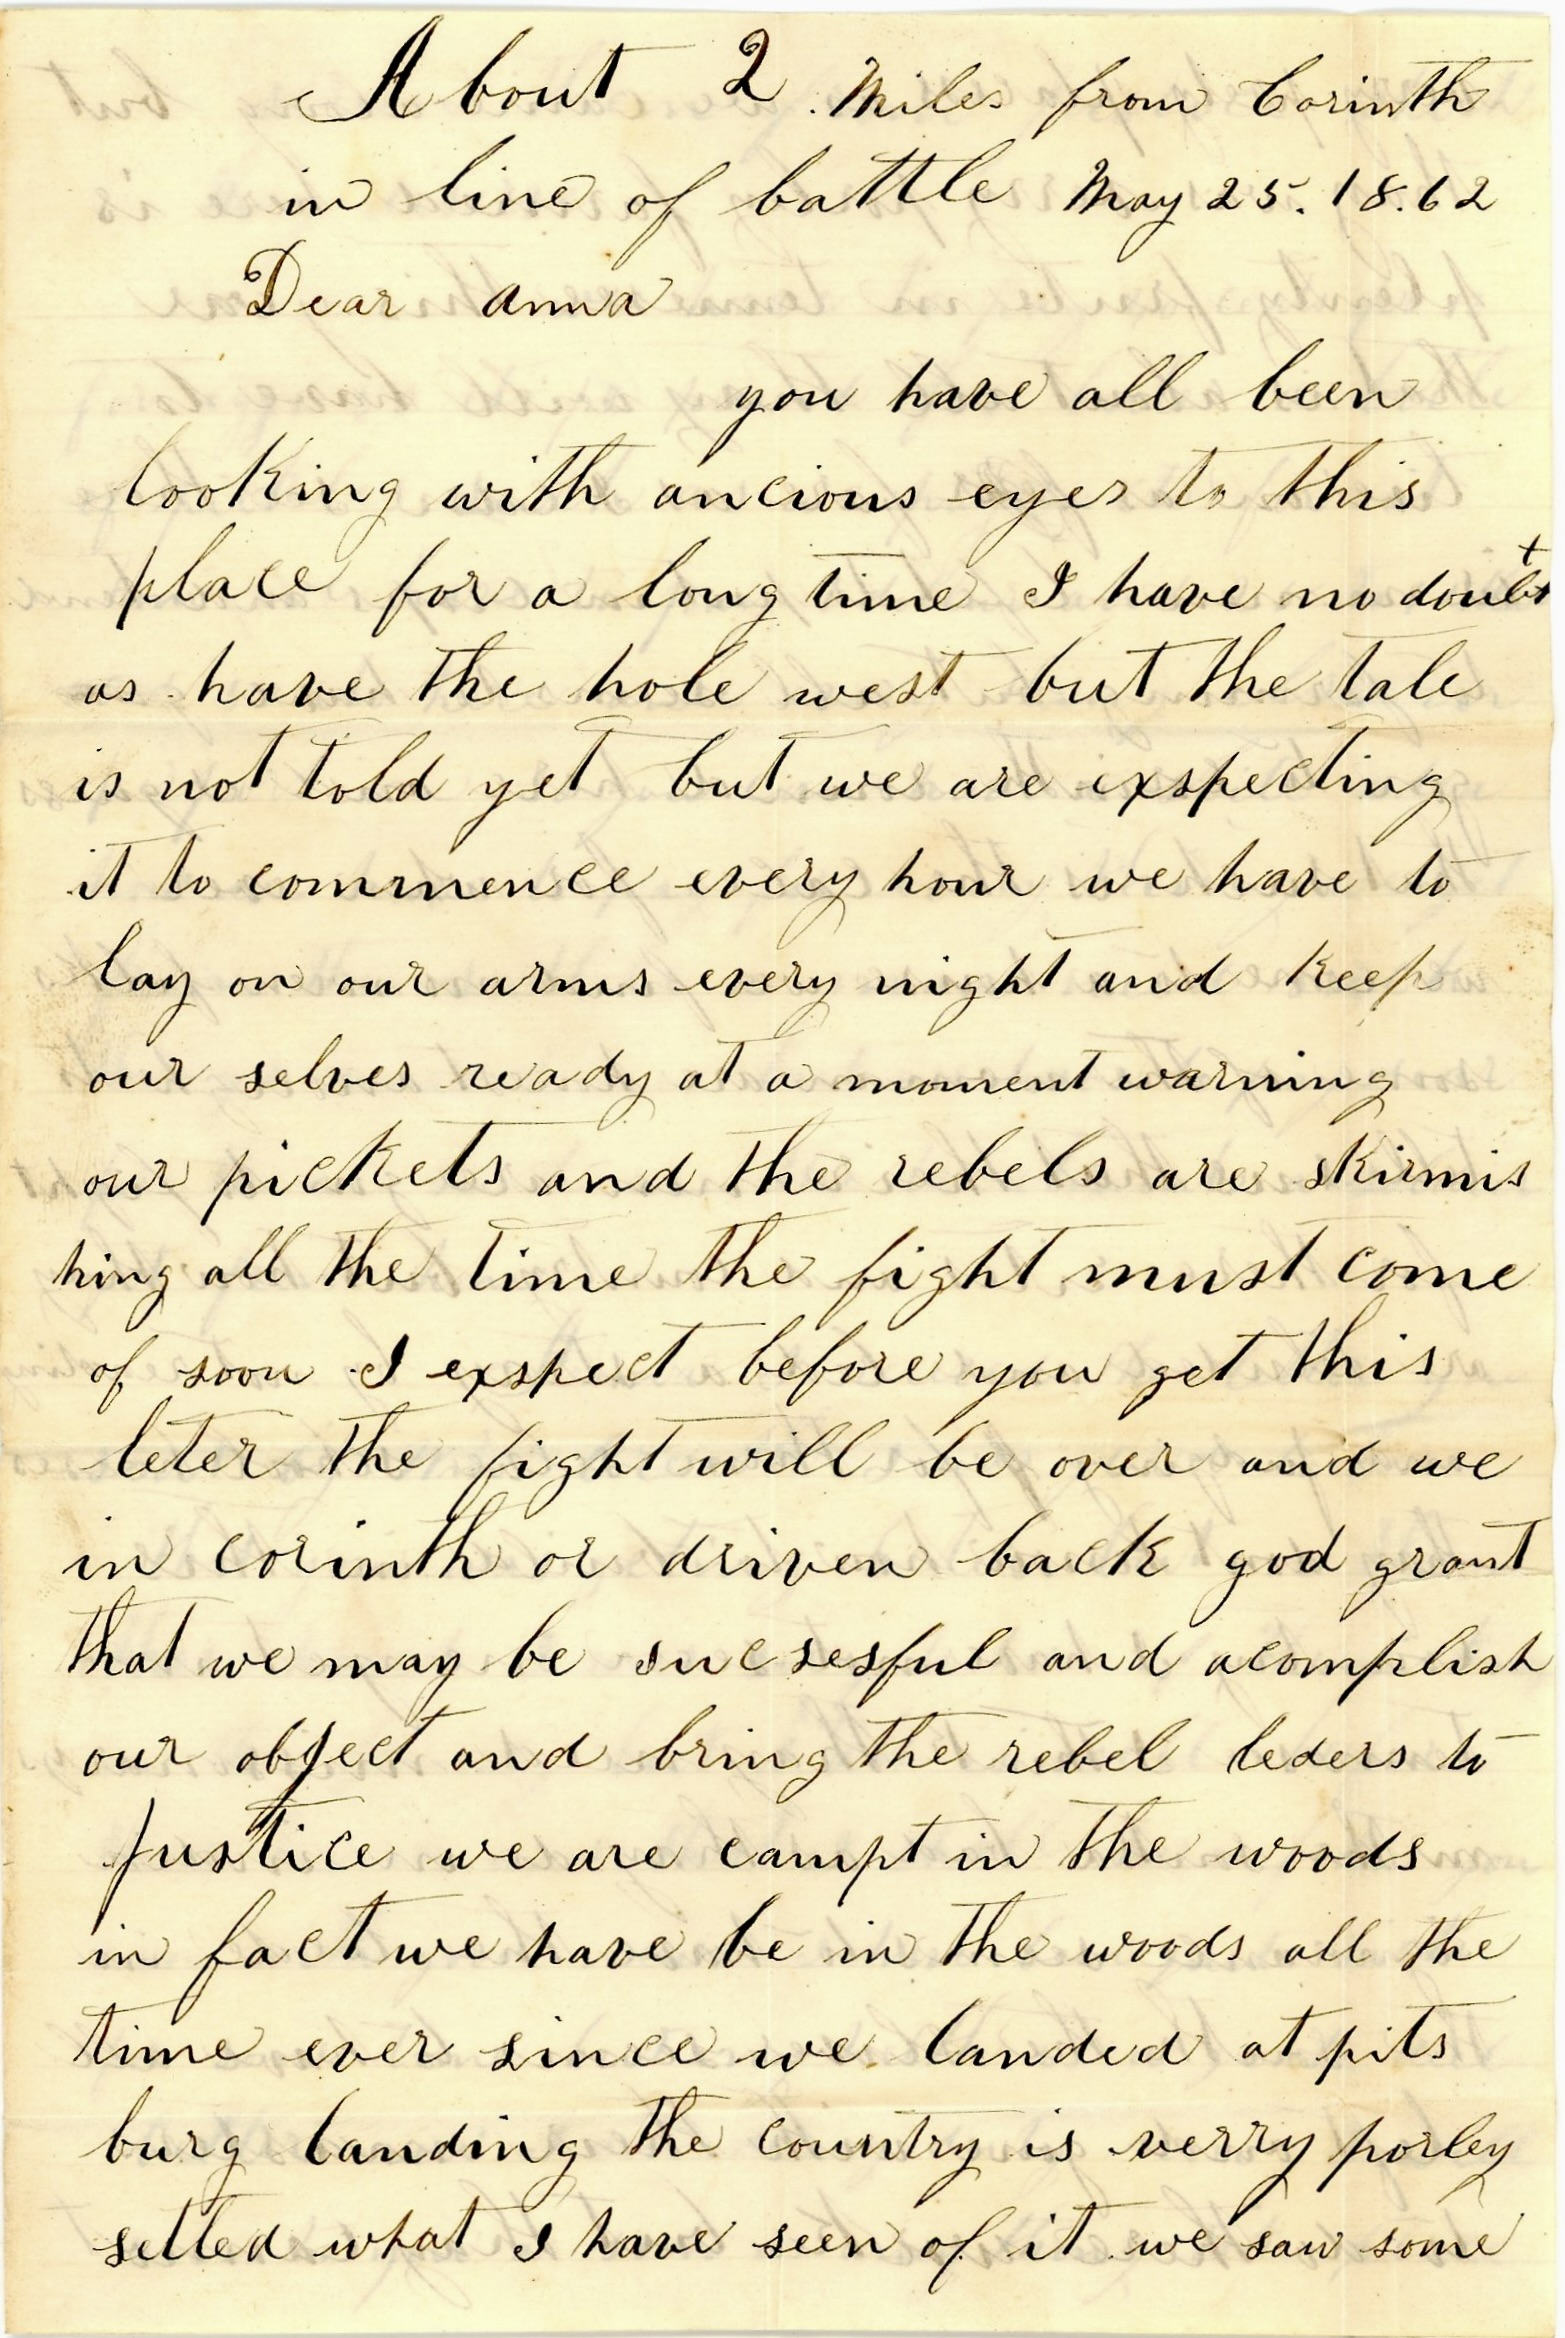 About 2 Miles from Corinth
in line of battle May 25. 18.62
Dear anna
you have all been
looking with ancious eyes to this
place for a long time I have no doubt
as have the hole west but the tale
is not told yet but we are exspecting
it to commence every hour we have to
lay on our arms every night and keep
our selves ready at a moment warning
our pickets and the rebels are skirmis
hing all the time the fight must come
of soon I exspect before you get this
leter the fight will be over and we
in corinth or driven back god grant
that we may be sucsesful and acomplish
our object and bring the rebel leders to
justice we are campt in the woods
in fact we have be in the woods all the
time ever since we landed at pits
burg landing the country is verry porley
setled what I have seen of it we saw some